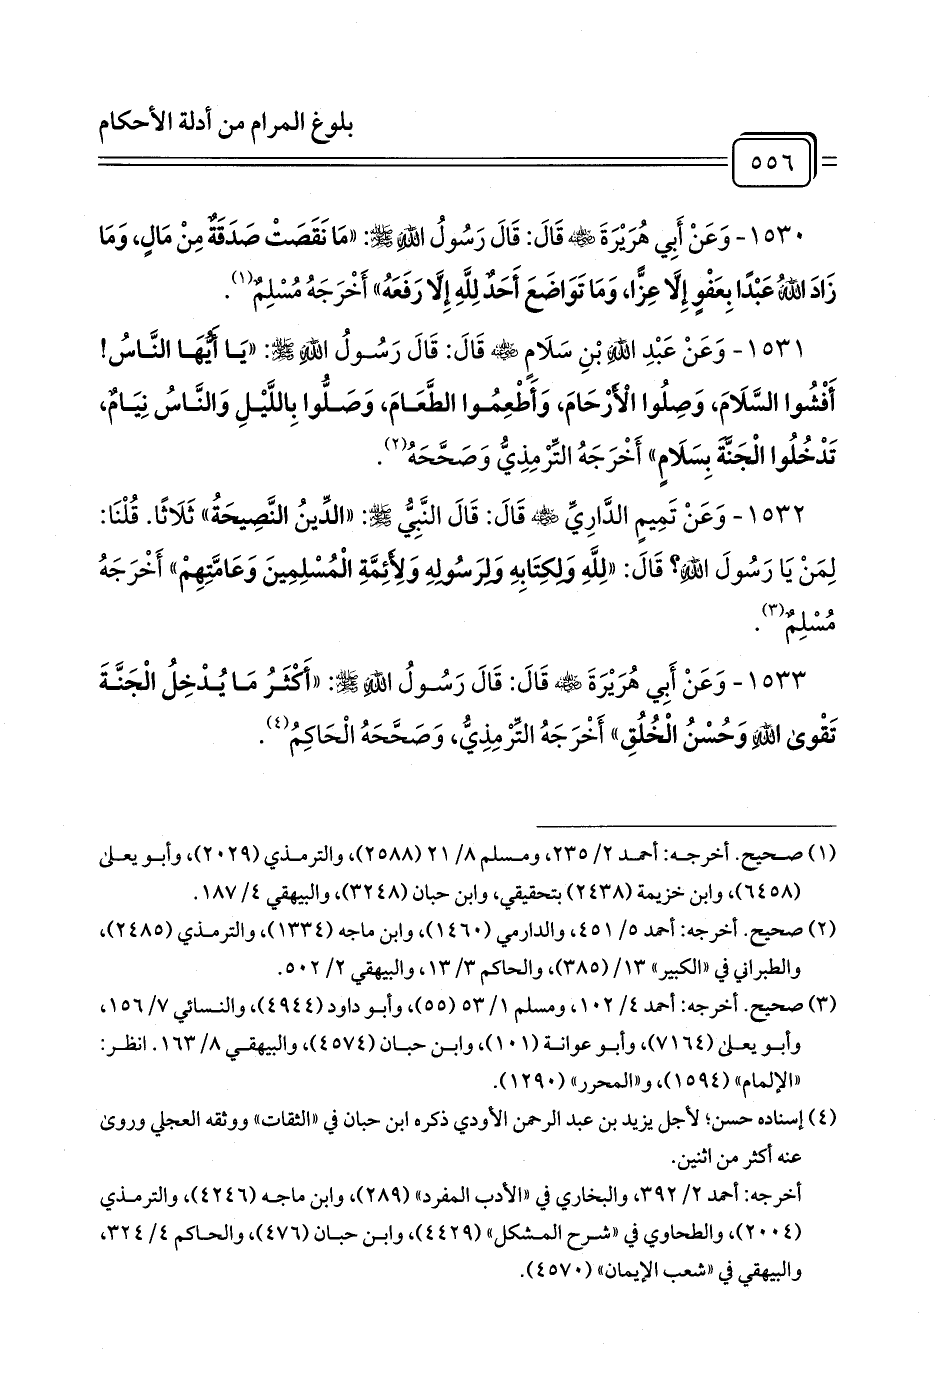 بلوغ المرام من أدلة الأحكام
٥٥٦
١٥٣٠- وَعَنْ أَبِي هُرَيْرَةَ ﵁ قَالَ: قَالَ رَسُولُ اللهِ ﷺ: «مَا نَقَصَتْ صَدَقَةٌ مِنْ مَالٍ، وَمَا
زَادَ اللهُ عَبْدًا بِعَفْوٍ إِلَّا عِزًّا، وَمَا تَوَاضَعَ أَحَدٌ لِلَّهِ إِلَّا رَفَعَهُ» أَخْرَجَهُ مُسْلِمٌ(١).
١٥٣١- وَعَنْ عَبْدِ اللهِ بْنِ سَلَامٍ ﵁ قَالَ: قَالَ رَسُولُ اللهِ ﷺ: «يَا أَيُّهَا النَّاسُ!
أَفْشُوا السَّلَامَ، وَصِلُوا الْأَرْحَامَ، وَأَطْعِمُوا الطَّعَامَ، وَصَلُّوا بِاللَّيْلِ وَالنَّاسُ نِيَامٌ،
تَدْخُلُوا الْجَنَّةَ بِسَلَامٍ» أَخْرَجَهُ التِّرْمِذِيُّ وَصَحَّحَهُ(٢).
١٥٣٢- وَعَنْ تَمِيمٍ الدَّارِيِّ ﵁ قَالَ: قَالَ النَّبِيُّ ﷺ: «الدِّينُ النَّصِيحَةُ» ثَلَاثًا. قُلْنَا:
لِمَنْ يَا رَسُولَ اللهِ؟ قَالَ: «لِلَّهِ وَلِكِتَابِهِ وَلِرَسُولِهِ وَلِأَئِمَّةِ الْمُسْلِمِينَ وَعَامَّتِهِمْ» أَخْرَجَهُ
مُسْلِمٌ(٣).
١٥٣٣- وَعَنْ أَبِي هُرَيْرَةَ ﵁ قَالَ: قَالَ رَسُولُ اللهِ ﷺ: «أَكْثَرُ مَا يُدْخِلُ الْجَنَّةَ
تَقْوىٰ اللهِ وَحُسْنُ الْخُلُقِ» أَخْرَجَهُ التِّرْمِذِيُّ، وَصَحَّحَهُ الْحَاكِمُ(٤).
(١) صحيح. أخرجه: أحمد ٢/ ٢٣٥، ومسلم ٨/ ٢١ (٢٥٨٨)، والترمذي (٢٠٢٩)، وأبو يعلىٰ
(٦٤٥٨)، وابن خزيمة (٢٤٣٨) بتحقيقي، وابن حبان (٣٢٤٨)، والبيهقي ٤/ ١٨٧.
(٢) صحيح. أخرجه: أحمد ٥/ ٤٥١، والدارمي (١٤٦٠)، وابن ماجه (١٣٣٤)، والترمذي (٢٤٨٥)،
والطبراني في «الكبير» ١٣/ (٣٨٥)، والحاكم ٣/ ١٣، والبيهقي ٢/ ٥٠٢.
(٣) صحيح. أخرجه: أحمد ٤/ ١٠٢، ومسلم ١/ ٥٣ (٥٥)، وأبو داود (٤٩٤٤)، والنسائي ٧/ ١٥٦،
وأبو يعلىٰ (٧١٦٤)، وأبو عوانة (١٠١)، وابن حبان (٤٥٧٤)، والبيهقي ٨/ ١٦٣. انظر:
«الإلمام» (١٥٩٤)، و«المحرر» (١٢٩٠).
(٤) إسناده حسن؛ لأجل يزيد بن عبد الرحمن الأودي ذكره ابن حبان في «الثقات» ووثقه العجلي وروىٰ
عنه أكثر من اثنين.
أخرجه: أحمد ٢/ ٣٩٢، والبخاري في «الأدب المفرد» (٢٨٩)، وابن ماجه (٤٢٤٦)، والترمذي
(٢٠٠٤)، والطحاوي في «شرح المشكل» (٤٤٢٩)، وابن حبان (٤٧٦)، والحاكم ٤/ ٣٢٤،
والبيهقي في «شعب الإيمان» (٤٥٧٠).